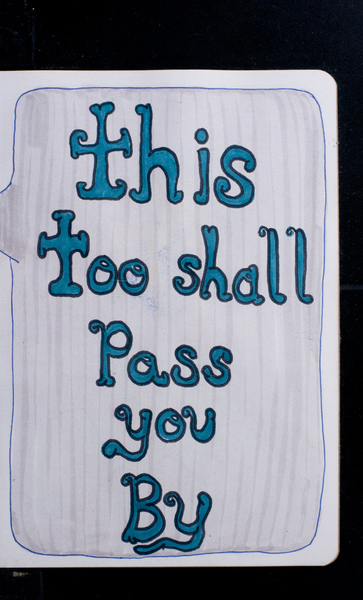 this
too shall
Pass
you
By